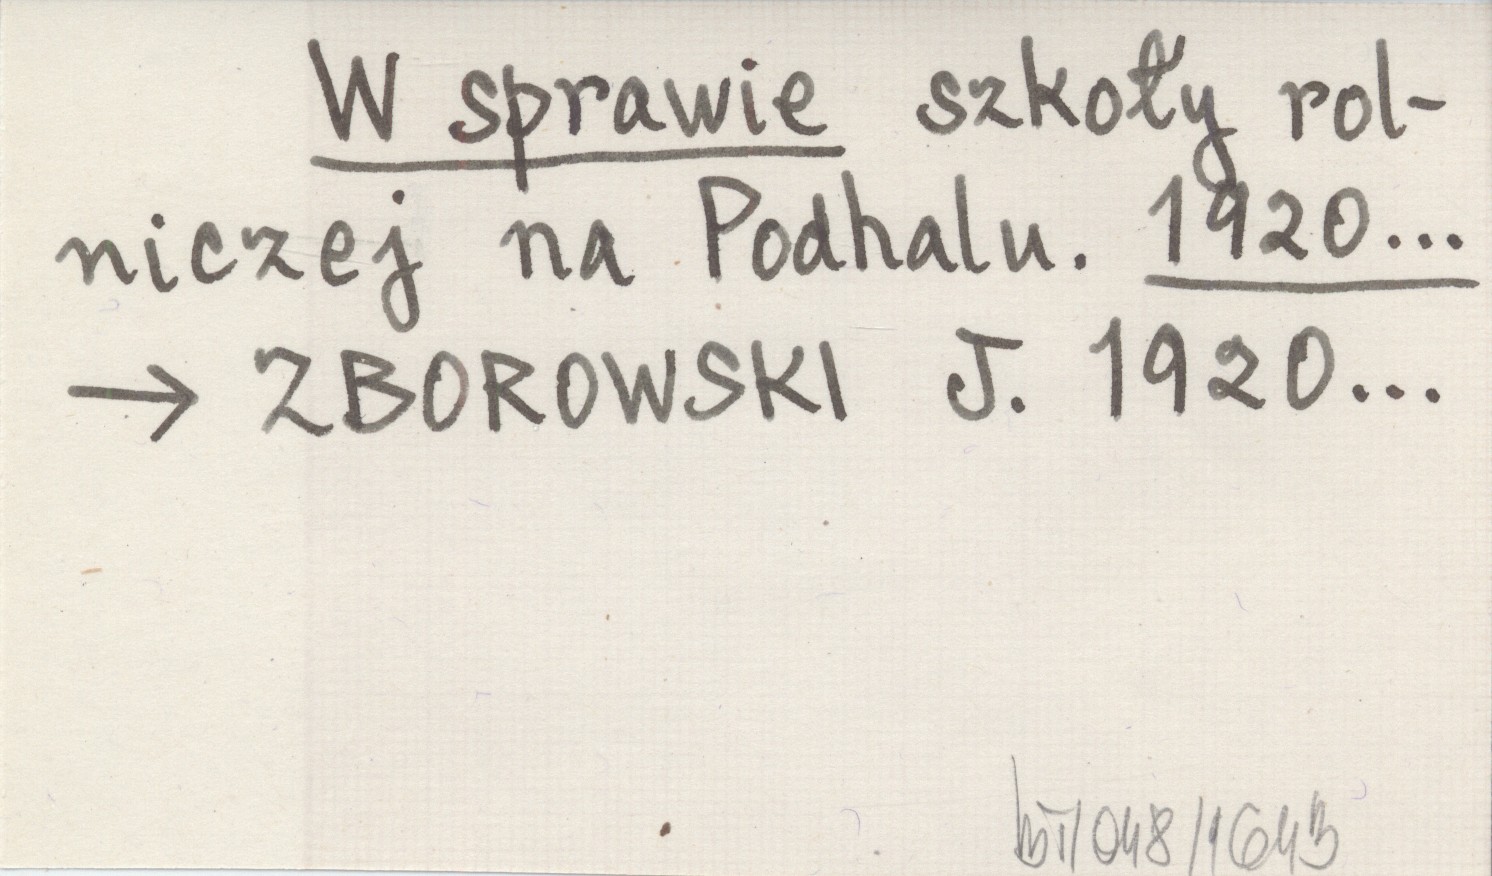 W sprawie szkoły rol-
niczej na Podhalu. 1920...
→ ZBOROWSKI J. 1920...